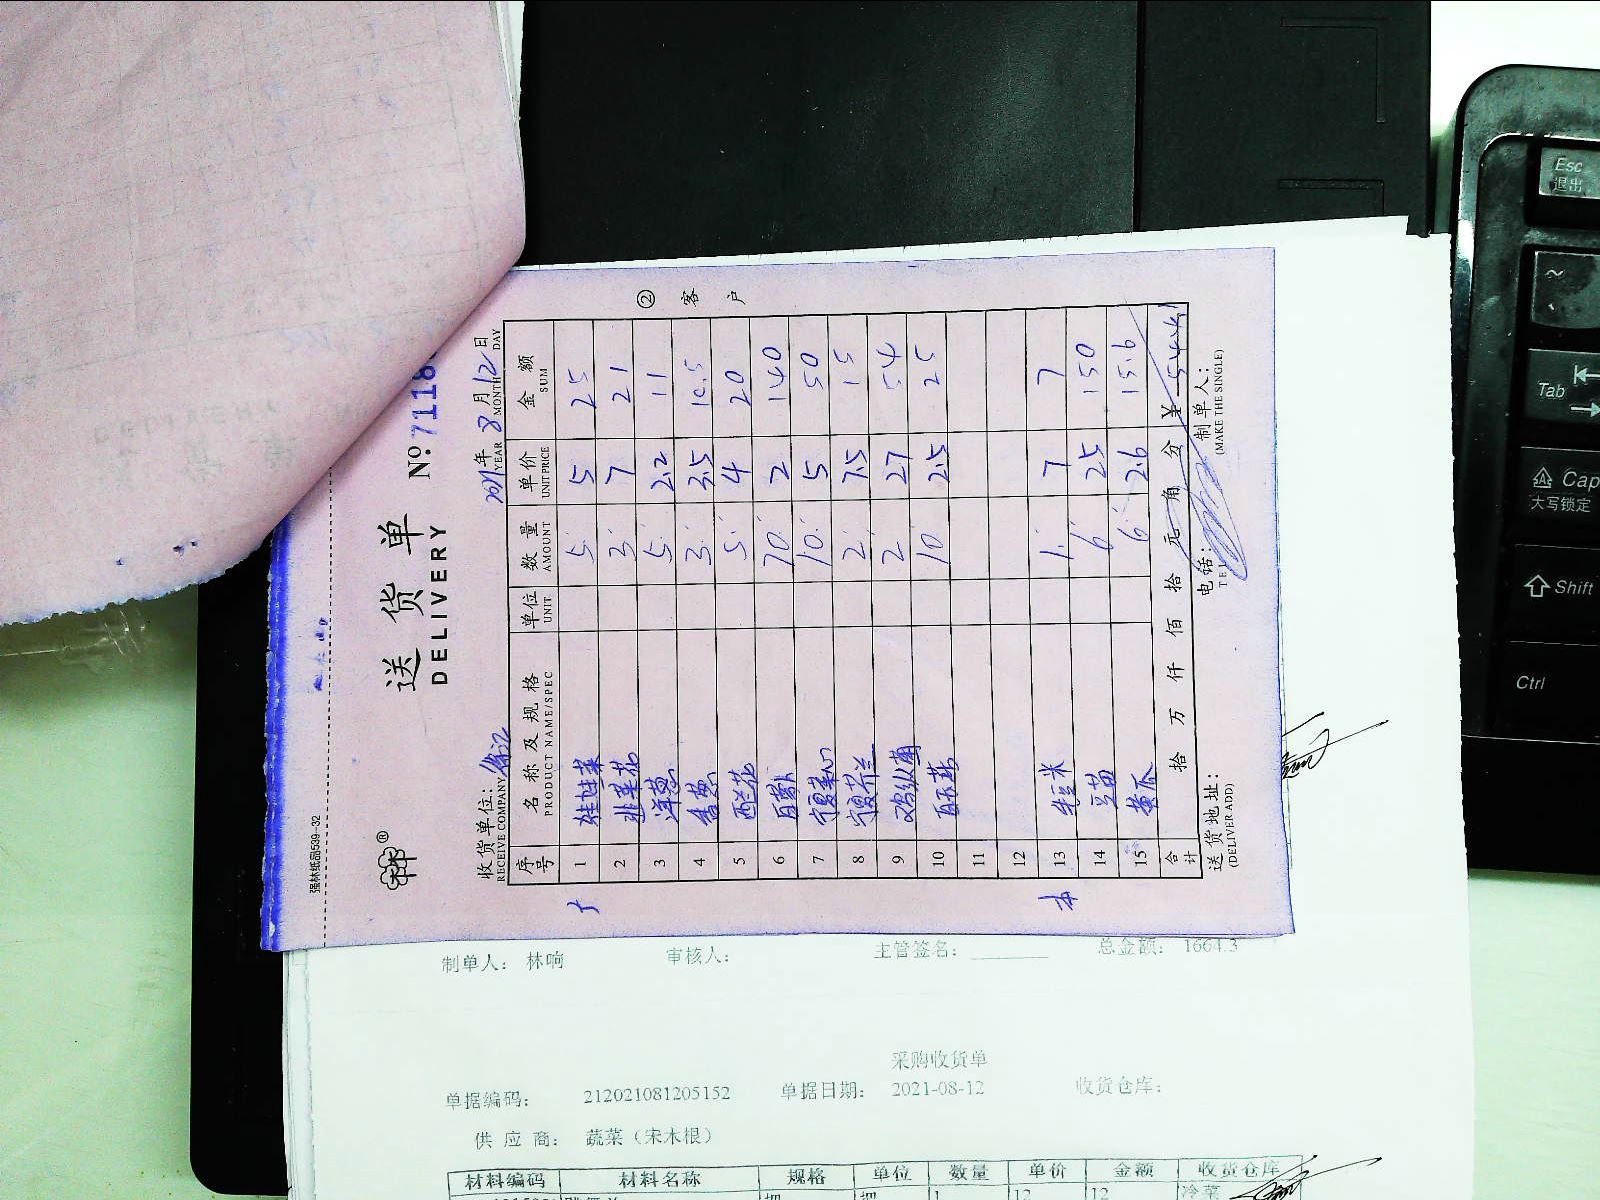 强林纸品539-32
送货单
DELIVERY
№ 7118
收货单位:
RECEIVE COMPANY
2021年 8月12日
YEAR MONTH DAY
② 客户
序号 名称及规格 单位 数量 单价 金额
PRODUCT NAME/SPEC UNIT AMOUNT UNIT PRICE SUM
1 娃娃菜 5 5 25
2 韭菜花 3 7 21
3 洋葱 5 2.2 11
4 香葱 3 3.5 10.5
5 西兰花 5 4 20
6 白萝卜 70 2 140
7 宁夏菜心 10 5 50
8 宁夏芥兰 2 7.5 15
9 鸡纵菌 2 27 54
10 10 2.5 25
11
12
13 1 7 7
14 豆苗 6 25 150
15 黄瓜 6 2.6 15.6
合计 拾 万 仟 佰 拾 元 角 分 ¥ 544.1
送货地址: 电话: 制单人:
(DELIVER ADD) TEL (MAKE THE SINGLE)
制单人: 林响 审核人: 主管签名: 总金额: 1664.3
采购收货单
单据编码: 212021081205152 单据日期: 2021-08-12 收货仓库:
供应商: 蔬菜（宋木根）
材料编码 材料名称 规格 单位 数量 单价 金额 收货仓库
把 把 1 12 12 冷菜
Esc
退出
~
Tab
Cap
大写锁定
Shift
Ctrl